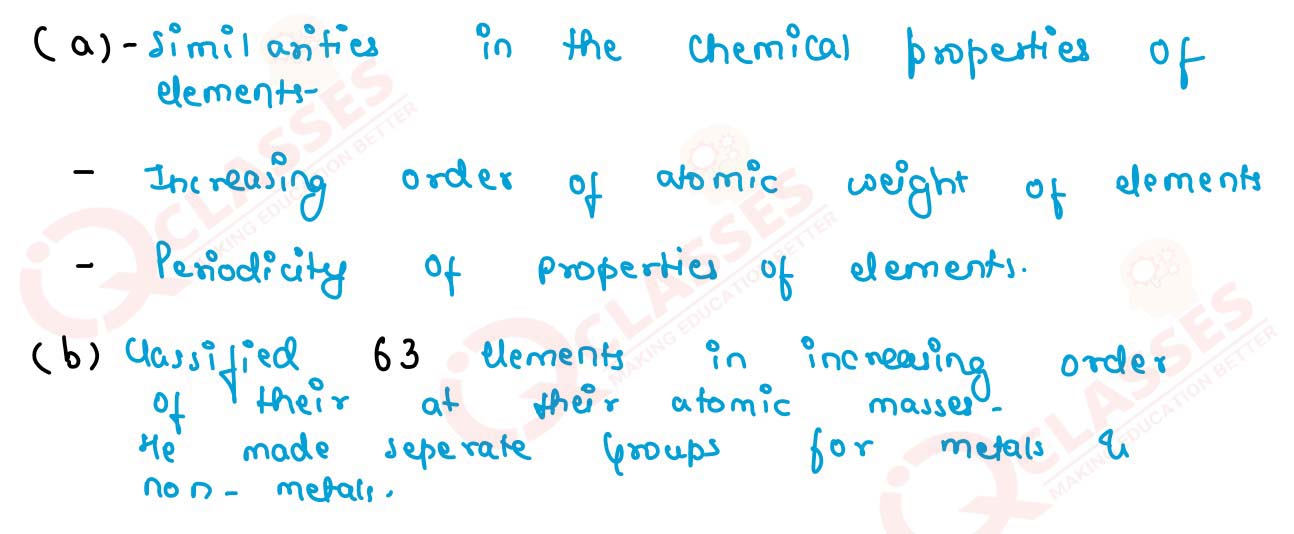 (a) - Similarities in the chemical properties of
elements-
- Increasing order of atomic weight of elements
- Periodicity of properties of elements.
(b) Classified 63 elements in increasing order
of their at their atomic masses-
He made seperate groups for metals &
non - metals.
CLASSES
MAKING EDUCATION BETTER
CLASSES
MAKING EDUCATION BETTER
CLASSES
MAKING EDUCATION BETTER